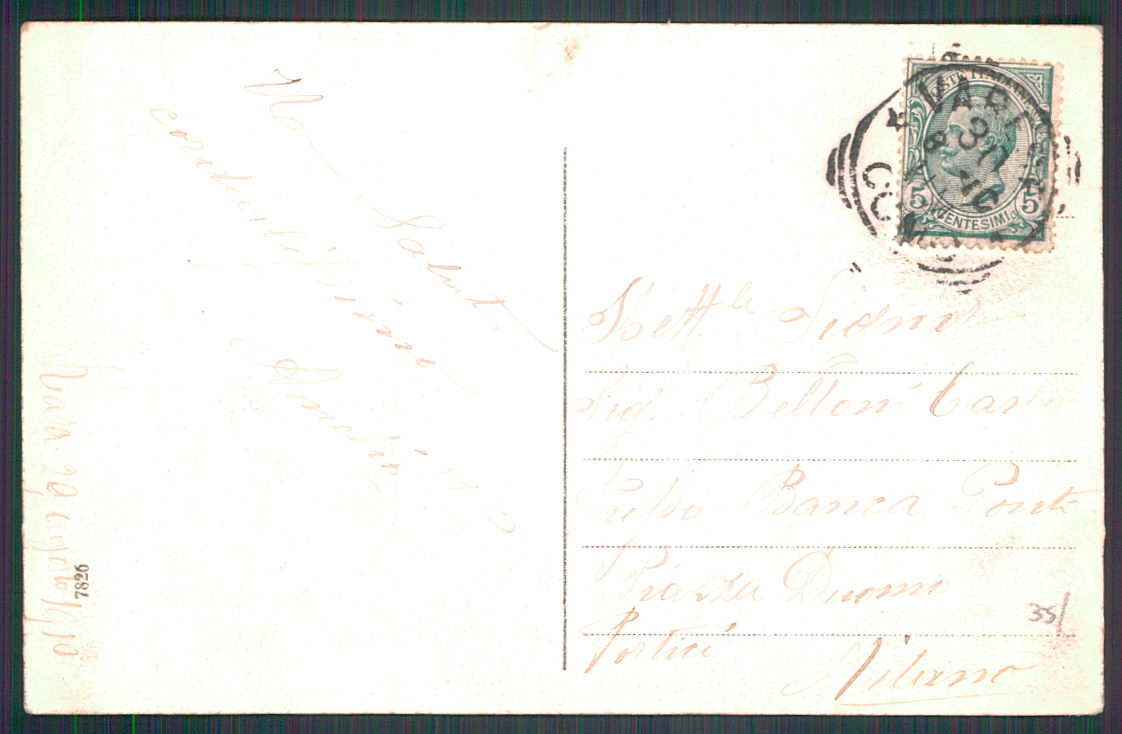 Un
Saluto
cordialissimo
Amelia
29 Agosto 1910
7826
POSTE ITALIANE
5 5
CENTESIMI
VARESE
30
8
10
COMO
Spett.le Signor
Sig. Belloni Carlo
Presso Banca Ponti
Piazza Duomo
Portici
Milano
35/